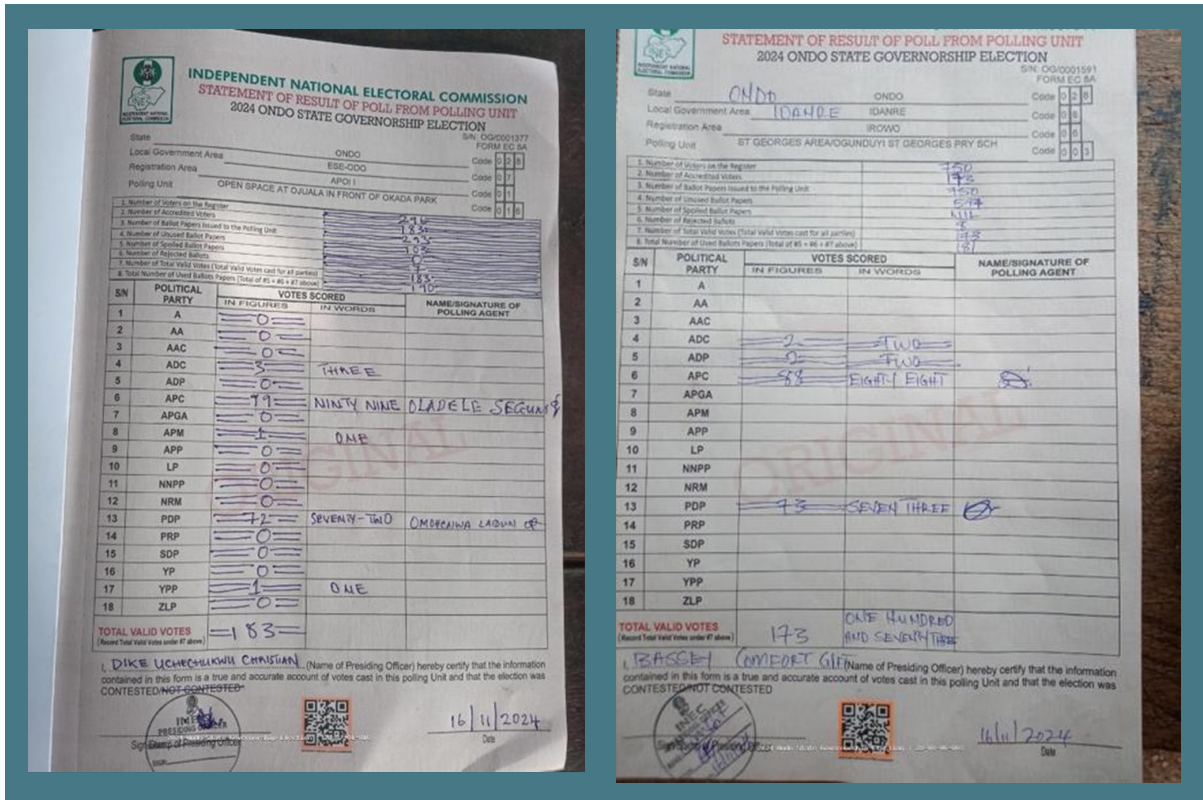 INDEPENDENT NATIONAL ELECTORAL COMMISSION
STATEMENT OF RESULT OF POLL FROM POLLING UNIT
2024 ONDO STATE GOVERNORSHIP ELECTION
S/N: OG/0001377
FORM EC 8A
State ONDO Code 0 2 8
Local Government Area ESE-ODO Code 0 7
Registration Area APOI I Code 0 1
Polling Unit OPEN SPACE AT OJUALA IN FRONT OF OKADA PARK Code 0 1 6
1. Number of Voters on the Register
2. Number of Accredited Voters
3. Number of Ballot Papers Issued to the Polling Unit
4. Number of Unused Ballot Papers
5. Number of Spoiled Ballot Papers
6. Number of Rejected Ballots
7. Number of Total Valid Votes (Total Valid Votes cast for all parties) 183
8. Total Number of Used Ballots Papers (Total of #5 + #6 + #7 above) 190
S/N POLITICAL PARTY VOTES SCORED NAME/SIGNATURE OF POLLING AGENT
IN FIGURES IN WORDS
1 A 0
2 AA 0
3 AAC 0
4 ADC 3 THREE
5 ADP 0
6 APC 99 NINTY NINE OLADELE SEGUN
7 APGA 0
8 APM 1 ONE
9 APP 0
10 LP 0
11 NNPP 0
12 NRM 0
13 PDP 72 SEVENTY-TWO
14 PRP 0
15 SDP 0
16 YP 0
17 YPP 1 ONE
18 ZLP 0
ORIGINAL
TOTAL VALID VOTES =183=
(Record Total Valid Votes under #7 above)
I, DIKE UCHECHUKWU CHRISTIAN (Name of Presiding Officer) hereby certify that the information
contained in this form is a true and accurate account of votes cast in this polling Unit and that the election was
CONTESTED/NOT CONTESTED
INEC
PRESIDING
16/11/2024
Sign/Stamp of Presiding Officer
Date
STATEMENT OF RESULT OF POLL FROM POLLING UNIT
2024 ONDO STATE GOVERNORSHIP ELECTION
S/N: OG/0001591
FORM EC 8A
State ONDO ONDO Code 0 2 8
Local Government Area IDANRE IDANRE Code 0 8
Registration Area IROWO Code 0 6
Polling Unit ST GEORGES AREA/OGUNDUYI ST GEORGES PRY SCH Code 0 0 3
1. Number of Voters on the Register 750
2. Number of Accredited Voters 173
3. Number of Ballot Papers Issued to the Polling Unit 750
4. Number of Unused Ballot Papers
5. Number of Spoiled Ballot Papers NIL
6. Number of Rejected Ballots 8
7. Number of Total Valid Votes (Total Valid Votes cast for all parties) 173
8. Total Number of Used Ballots Papers (Total of #5 + #6 + #7 above) 181
S/N POLITICAL PARTY VOTES SCORED NAME/SIGNATURE OF POLLING AGENT
IN FIGURES IN WORDS
1 A
2 AA
3 AAC
4 ADC 2 TWO
5 ADP 2 TWO
6 APC 88 EIGHTY EIGHT
7 APGA
8 APM
9 APP
10 LP
11 NNPP
12 NRM
13 PDP 73 SEVEN THREE
14 PRP
15 SDP
16 YP
17 YPP
18 ZLP
ORIGINAL
TOTAL VALID VOTES 173 ONE HUNDRED AND SEVENTY THREE
(Record Total Valid Votes under #7 above)
I, BASSEY COMFORT GIFT (Name of Presiding Officer) hereby certify that the information
contained in this form is a true and accurate account of votes cast in this polling Unit and that the election was
CONTESTED/NOT CONTESTED
INEC
16/11/2024
Sign/Stamp of Presiding Officer
Date